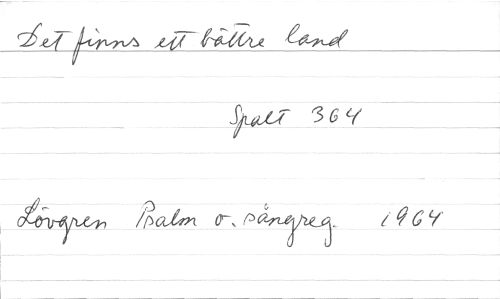 Det finns ett bättre land
Spalt 364
Lövgren Psalm o. sångreg. 1964